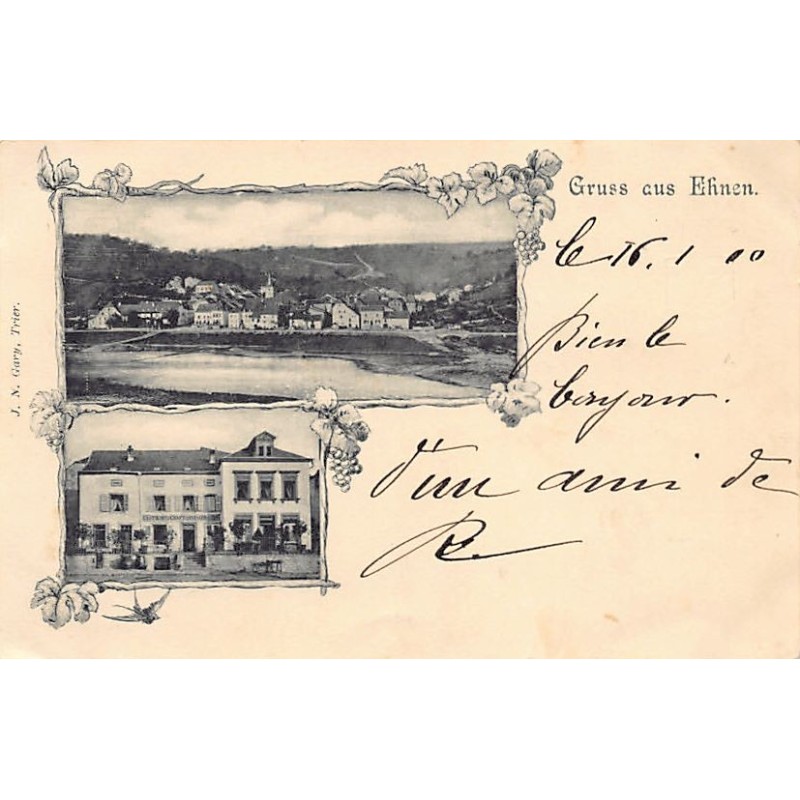 Gruss aus Ehnen.
le 16. 1 00
Bien le
bonjour.
d'un ami de
R
J. N. Gary, Trier.